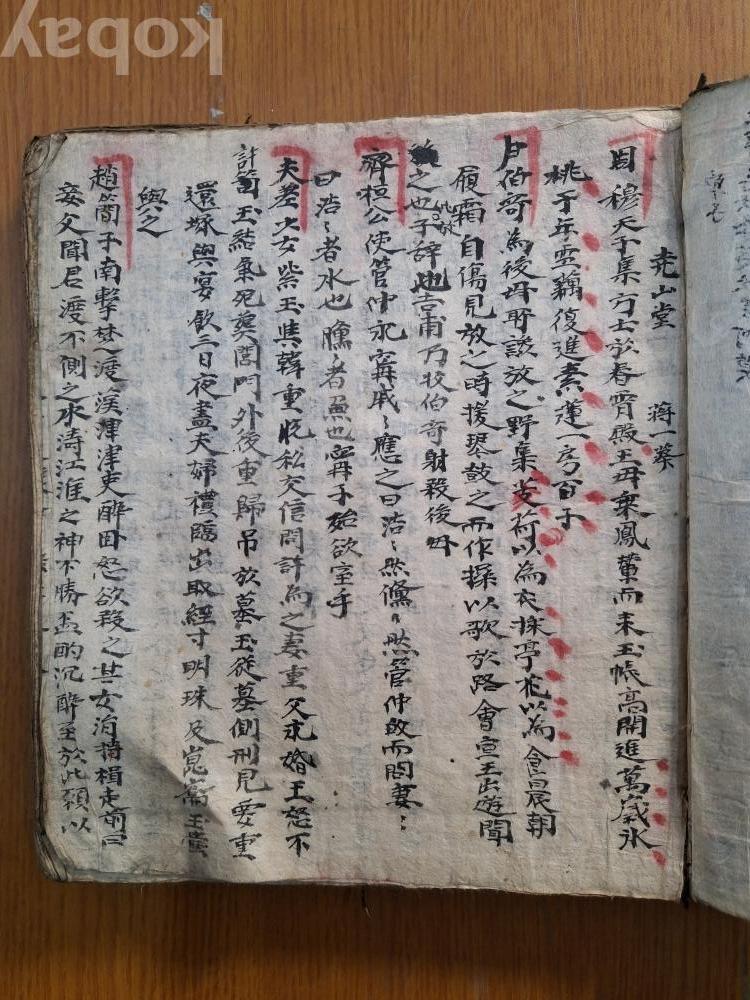 堯山堂 蔣一葵
周穆天子集方士於春霄殿王母乘鳳輦而來玉帳高開進萬歲氷
桃千年雪藕復進素蓮一房百子
尹伯奇為後母所譖放之野集芰荷以為衣採亭花以為食晨朝
履霜自傷見放之時援琴鼓之而作操以歌於路會宣王出遊聞
之也子辞也吉甫乃收伯奇射殺後母
齊桓公使管仲求甯戚〻應之曰浩〻然儵〻然管仲啟而問妻〻
曰浩〻者水也 者魚也甯子殆欲室乎
夫差少女紫玉與韓重 私交信問許為之妻重父求婚王怒不
許 玉結氣死葬閶門外後重歸吊於墓玉從墓側形見要重
還塚與宴飲三日夜盡夫婦禮臨出取經寸明珠及崑崙玉壺
與之
趙簡子南擊楚渡漢津津吏醉因怒欲殺之其女涓持楫走前曰
妾父聞君渡不測之水涛江淮之神不勝盃酌沉醉至於此願以
kobay